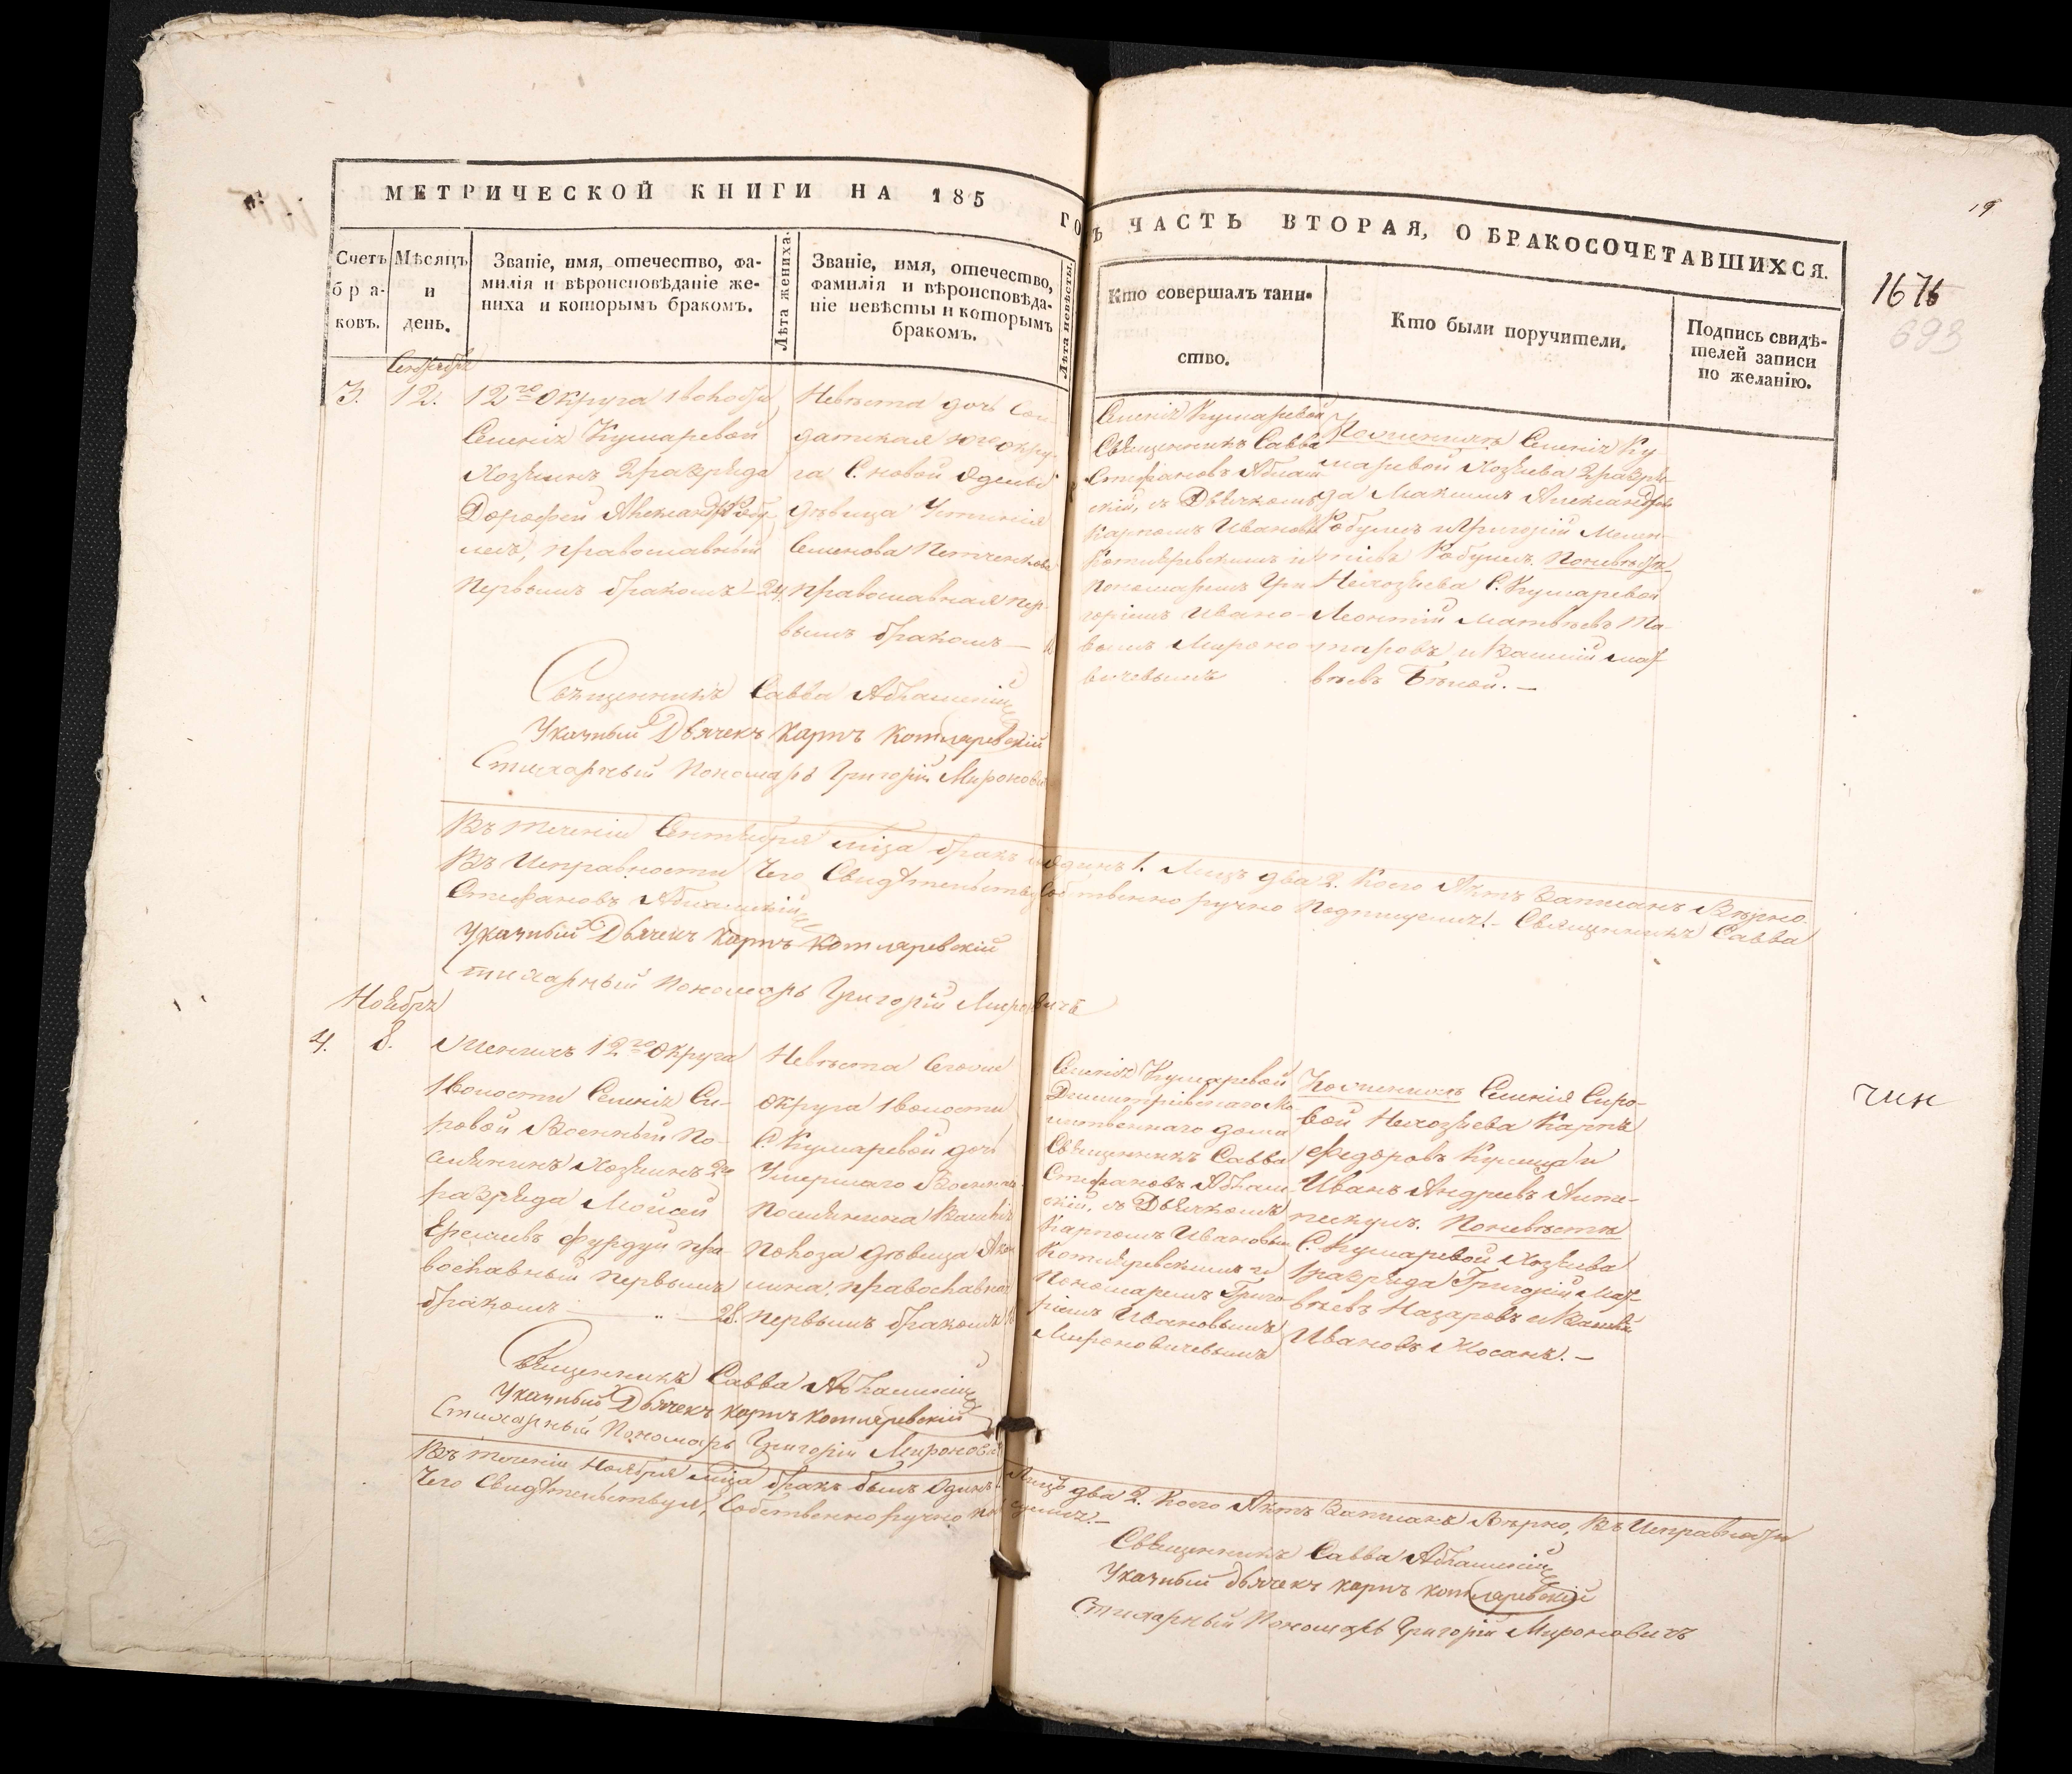 МЕТРИЧЕСКОЙ КНИГИ НА 185 ГО
Ъ ЧАСТЬ ВТОРАЯ, О БРАКОСОЧЕТАВШИХСЯ.
19
1676
693
Счетъ бра-ковъ.
Мѣсяцъ и день.
Званіе, имя, отечество, фа-
милія и вѣроисповѣданіе же-
ниха и которымъ бракомъ.
Лѣта жениха.
Званіе, имя, отечество,
фамилія и вѣроисповѣда-
ніе невѣсты и которымъ
бракомъ.
Лѣта невѣсты.
Кто совершалъ таин-
ство.
Кто были поручители.
Подпись свидѣ-
телей записи
по желанію.
3.
12.
12го Округа 1 
Селенія Кумаревой
Хозяинъ 2 разряда
Дорофей
православный
Первымъ бракомъ 24.
Невѣста дочь Сол-
датская
га С. новой Одессы
дѣвица Устинія
Семенова
православная пер-
вымъ бракомъ
Селенія Кумаревой
Священникъ Савва
Стефановъ
скій, съ Дьячкомъ
Карпомъ Ивановы
Котляревскимъ и
Пономаремъ Гри
горіемъ Ивано-
вымъ Мироно
вичевымъ
По женихѣ Селенія Ку
маревой Хозяева 2 разря
да Максимъ Александровъ
и Григорій Мелен-
тіевъ По невѣстѣ
Нехозяева С. Кумаревой
Леонтій Матвѣевъ Та-
таровъ и Василій Мат
вѣевъ Бѣлой. —
Священникъ Савва
Указный Дьячекъ Карпъ Котляревскій
Стихарный Пономарь Григорій Миронови
Въ теченіи Сентября мѣца бракъ одинъ 1. Лицъ два 2. Коего Актъ Записанъ Вѣрно
Въ Исправности Чего Свидѣтельствуемъ Собственно ручно Подпищемъ. — Священникъ Савва
Стефановъ
Указный Дьячекъ Карпъ Котляревскій
Стихарный Пономарь Григорій Мироновичъ
Ноябрь
4.
8.
Женихъ 12го Округа
1 волости Селенія Си-
ровой Военный По-
селянинъ Хозяинъ 2го
разряда Мойсей
Еремѣевъ Фурдуй пра-
вославный первымъ
бракомъ — 28.
Невѣста Сегоже
округа 1 волости
С. Кумаревой дочь
Умершаго Военнаго
Поселянина Василія
дѣвица
православная
первымъ бракомъ
Селенія Кумаревой
Димитріевскаго Мо
литвеннаго дома
Священникъ Савва
Стефановъ
скій, съ Дьячкомъ
Карпомъ Ивановым
Котляревскимъ и
Пономаремъ Григо
ріемъ Ивановымъ
Мироновичевымъ
По женихѣ Селенія Сиро-
вой Нехозяева Карпъ
Федоровъ и
Иванъ Андреевъ
По невѣстѣ
С. Кумаревой Хозяева
1 разряда Григорій Мат
вѣевъ Назаровъ и Василій
Ивановъ Мосанъ. —
чин
Священникъ Савва
Указный Дьячекъ Карпъ Котляревскій
Стихарный Пономарь Григорій Миронови
Въ теченіи Ноября мѣца бракъ былъ Одинъ Лицъ два 2. Коего Актъ Записанъ Вѣрно, Въ Исправности
Чего Свидѣтельствуемъ, Собственно ручно
Священникъ Савва
Указный Дьячекъ Карпъ Котляревскій
Стихарный Пономарь Григорій Мироновичъ